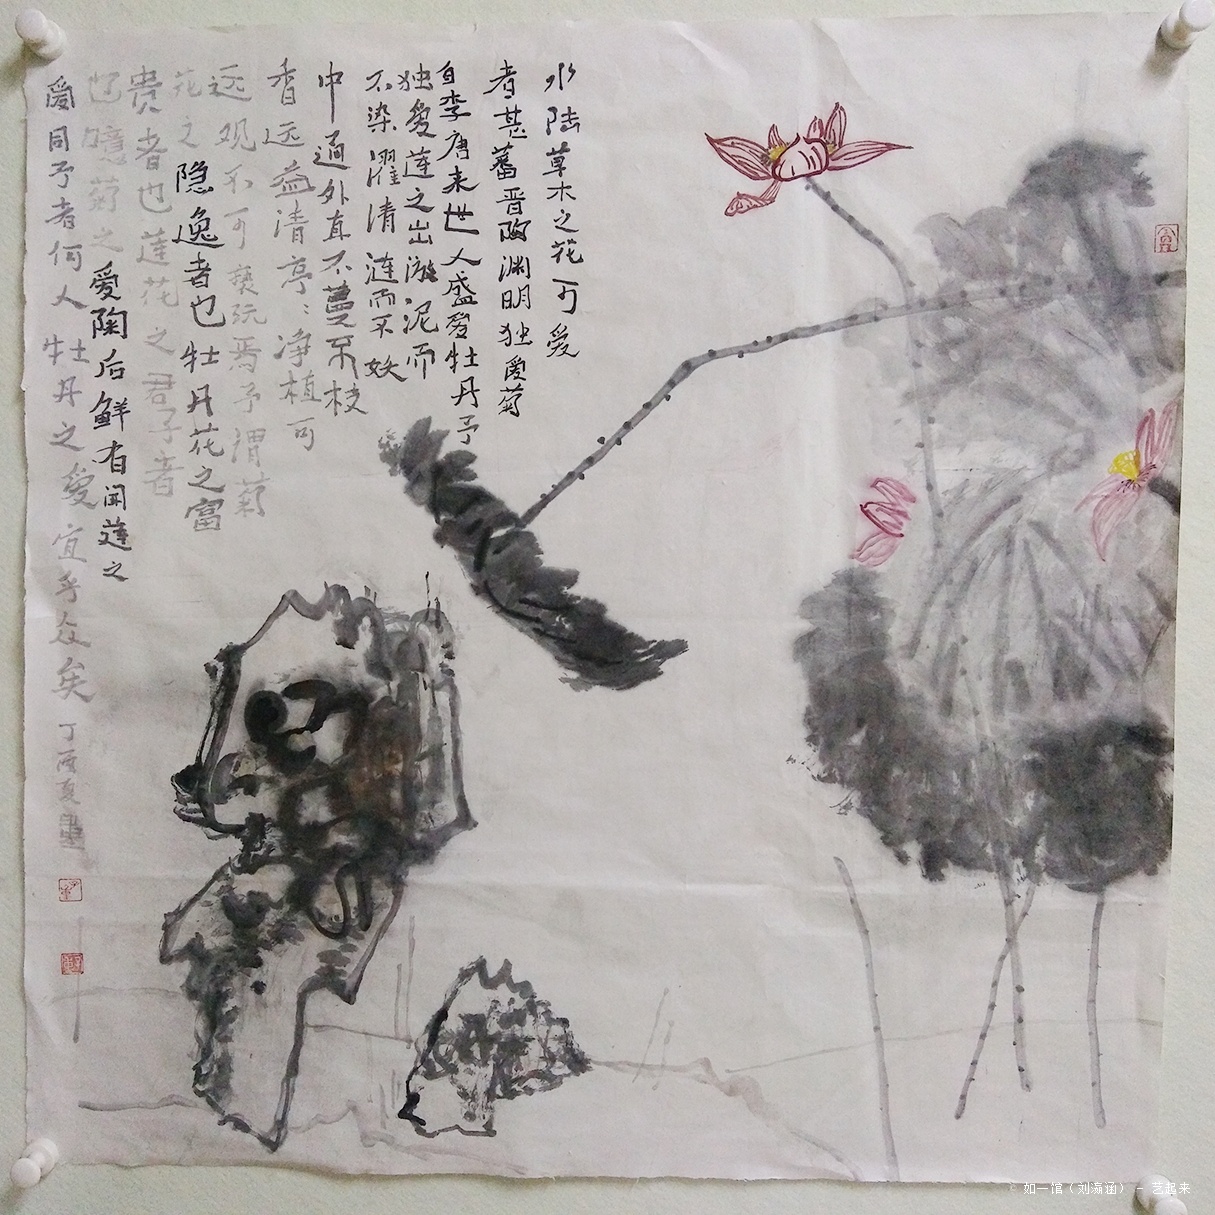 水陆草木之花可爱
者甚蕃晋陶渊明独爱菊
自李唐来世人盛爱牡丹予
独爱莲之出淤泥而
不染濯清涟而不妖
中通外直不蔓不枝
香远益清亭：净植可
远观不可亵玩焉予谓菊
花之隐逸者也牡丹花之富
贵者也莲花之君子者
也噫菊之爱陶后鲜有闻莲之
爱同予者何人牡丹之爱宜乎众矣
丁酉夏
如一馆（刘瀛涵） - 艺起来